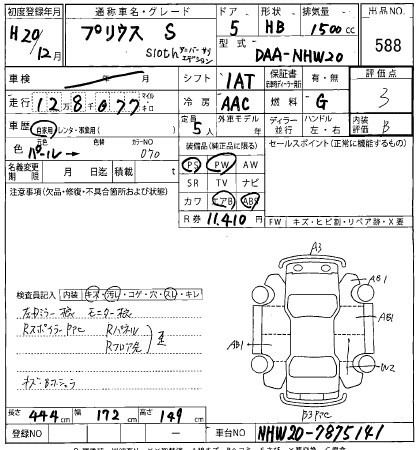 初度登録年月 通称車名・グレード ドア 形状 排気量 出品NO.
H20年 12月 プリウス S 5 HB 1500cc 588
10th アニバーサリーエディション 型式 DAA-NHW20
車検 年 月 シフト 1AT 保証書 有・無 評価点
走行 128077 マイル キロ 冷房 AAC 燃料 G 3
車歴 自家用・レンタ・事業用( ) 定員 5人 外車モデル 年 ディーラー 並行 ハンドル 左・右 内装評価 B
色 元色 パール→ 色替 カラーNO 070 装備品(純正品に限る) セールスポイント(正常に機能するもの)
名義変更期限 月 日迄 積載 t PS PW AW
注意事項(欠品・修復・不具合箇所および状態) SR TV ナビ
カワ エアB ABS
R券 11,410円 FW キズ・ヒビ割・リペア跡・X要
A3
検査員記入 内装 キズ・汚レ・コゲ・穴・スレ・キレ AB1
左右ミラー AB1
RスポイラーP.P.C Rパネル AB1
Rフロア先 W2
B3 P.P.C
長さ 444cm 幅 172cm 高さ 149cm
登録NO ー 車台NO NHW20-7875141